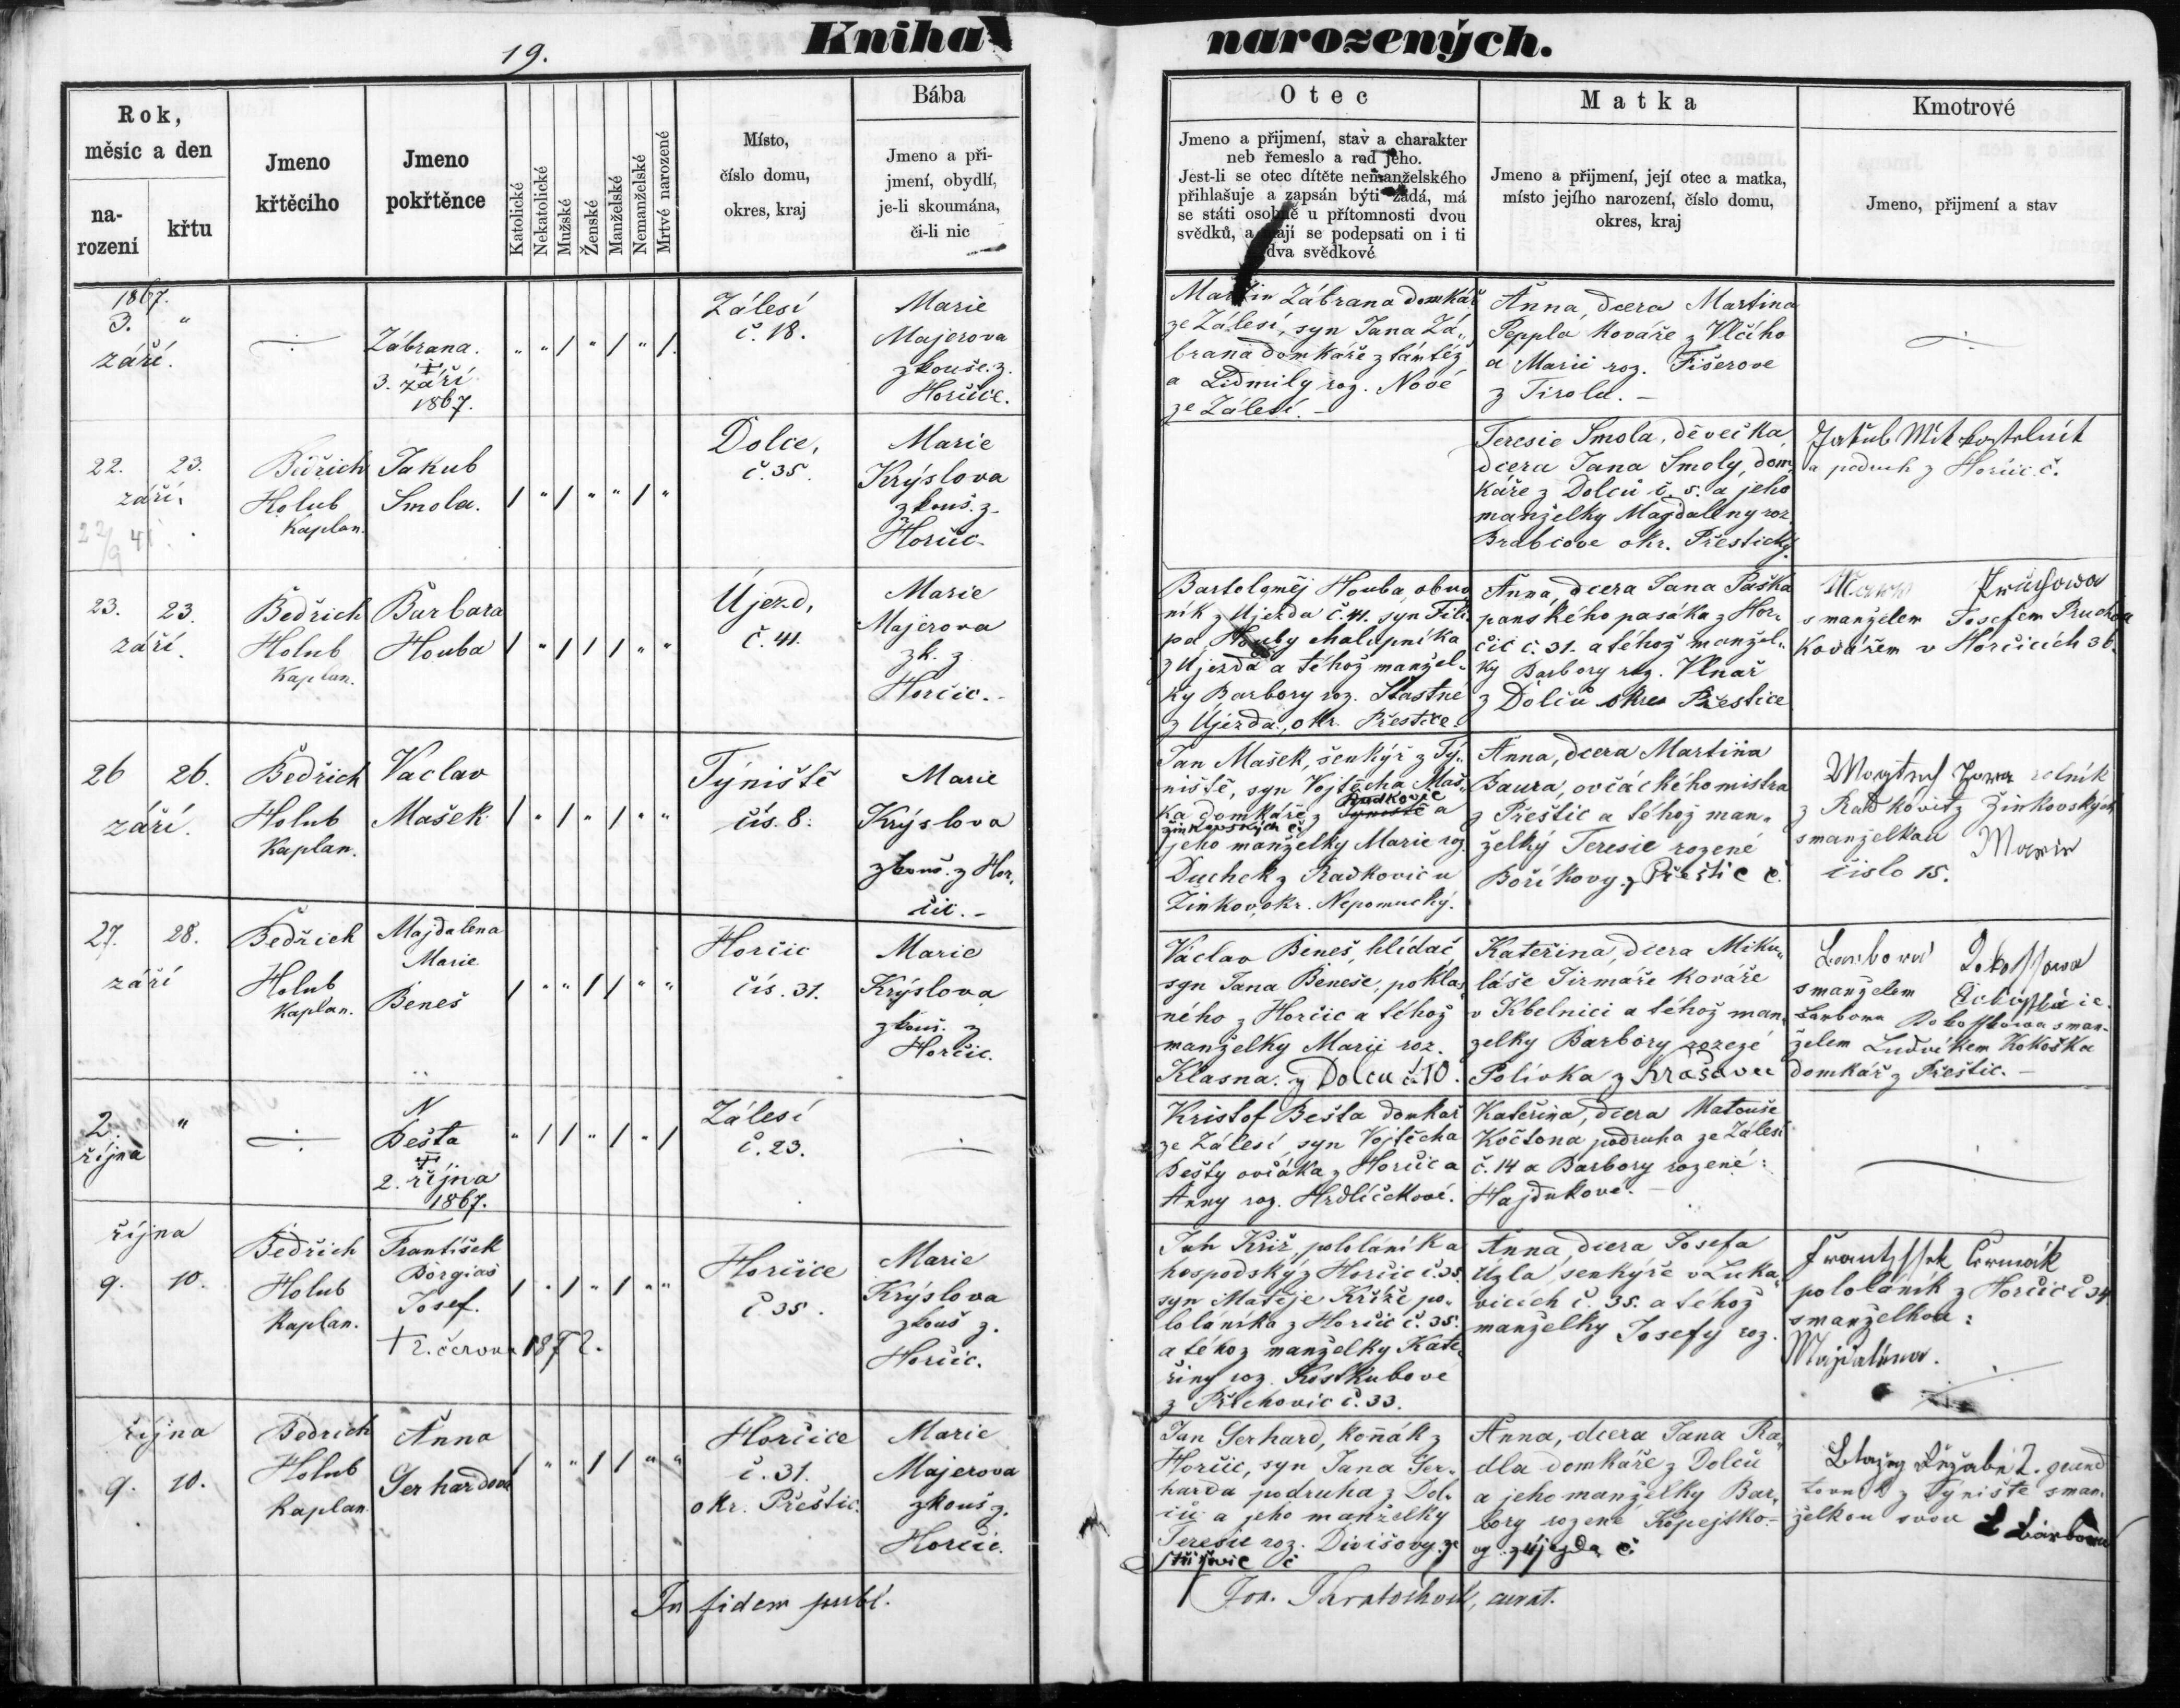 19.
Kniha narozených.
Rok,
měsíc a den
na-
rození
křtu
Jmeno
křtěcího
Jmeno
pokřtěnce
Katolické
Nekatolické
Mužské
Ženské
Manželské
Nemanželské
Mrtvé narozené
Místo,
číslo domu,
okres, kraj
Bába
Jmeno a při-
jmení, obydlí,
je-li skoumána,
či-li nic
Otec
Jmeno a přijmení, stav a charakter
neb řemeslo a rod jeho.
Jest-li se otec dítěte nemanželského
přihlašuje a zapsán býti žádá, má
se státi osobně u přítomnosti dvou
svědků, a mají se podepsati on i ti
dva svědkové
Matka
Jmeno a přijmení, její otec a matka,
místo jejího narození, číslo domu,
okres, kraj
Kmotrové
Jmeno, přijmení a stav
1867.
3. "
září.
Zábrana.
3. září
1867.
" " / " / " /
Zálesí
č. 18.
Marie
Majerova
zkouše. z.
Horčic.
Martin Zábrana domkář
ze Zálesí, syn Jana Zá-
brana domkáře z tamtéž
a Lidmily roz. Nové
ze Zálesí. –
Anna, dcera Martina
Peppla kováře z Vlčího
a Marii roz. Fišerove
z Tirolu. –
22. 23.
září.
22/9 41
Bedřich
Holub
Kaplan.
Jakub
Smola.
/ " / " " / "
Dolce,
č. 35.
Marie
Krýslova
zkouš. z
Horčic
Teresie Smola, děvečka
dcera Jana Smoly, dom-
káře z Dolců č. 5. a jeho
manželky Magdaleny roz.
Brabcove okr. Přestický.
Jakub Mit kostelnik
a podruh z Horčic č.
23. 23.
září.
Bedřich
Holub
Kaplan.
Barbara
Houba
/ " / / / " "
Újezd,
č. 41.
Marie
Majerova
zk. z
Horčic.
Bartoloměj Houba, obuv-
ník z Újezda č. 41. syn Fili-
pa Houby chalupníka
z Újezda a téhož manžel-
ky Barbory roz. Šťastné
z Újezda, okr. Přestice.
Anna, dcera Jana Paška
panského pasáka z Hor-
čic č. 31. a téhož manžel-
ky Barbory roz. Vlnař
z Dolců okres Přestice
s manželem Josefem Prucha
Kovářem v Horčicích 36.
26 26.
září.
Bedřich
Holub
Kaplan.
Vaclav
Mašek
/ " / " / " "
Týniště
čís. 8.
Marie
Krýslova
zkouš. z Hor-
čic. –
Jan Mašek, šenkýř z Tý-
niště, syn Vojtěcha Maš-
ka domkáře z Týniště Radkovic a
Žinkovských č.
jeho manželky Marie roz.
Duchek z Radkovic u
Žinkov, okr. Nepomucký.
Anna, dcera Martina
Baura, ovčáckého mistra
z Přeštic a téhož man-
želky Teresie rozené
Boříkovy z Přeštic č.
rolník
z Radkovic z Žinkovských
s manželkau Marie
číslo 15.
27. 28.
září
Bedřich
Holub
Kaplan.
Majdalena
Marie
Beneš
/ " " / / " "
Horčic
čís. 31.
Marie
Krýslova
zkouš. z
Horčic.
Václav Beneš, hlídač,
syn Jana Beneše, poklas-
ného z Horčic a téhož
manželky Marii roz.
Klasna z Dolců č. 10.
Kateřina, dcera Miku-
láše Tirmaře kováře
v Kbelnici a téhož man-
želky Barbory rozené
Polívka z
s manželem
Barbora s man-
želem Ludvikem Kokoška
domkář z Přeštic. –
2. "
října
N
Bešta
2. října
1867.
" / / " / " /
Zálesí
č. 23.
Kristof Bešta domkář
ze Zálesí, syn Vojtěcha
Bešty ovčáka z Horčic a
Anny roz. Hrdličkové.
Kateřina, dcera Matouše
Kočtona podruha ze Zálesí
č. 14 a Barbory rozené:
Hajdukové. –
října
9. 10.
Bedřich
Holub
Kaplan.
František
Borgias
Josef.
† 2. června 1872.
/ " / " / " "
Horčice
č. 35.
Marie
Krýslova
zkouš z.
Horčic.
Jan Kříž, pololáník a
hospodský z Horčic č. 35.
syn Matěje Kříže po-
loláníka z Horčic č. 35.
a téhož manželky Kate-
řiny roz. Koslkubové
z Přichovic č. 33.
Anna, dcera Josefa
Úzla, šenkýře v Luka-
vicích č. 35. a téhož
manželky Josefy roz.
Frantissek Čermák
pololáník z Horčic č 34
s manželkou:
Majdalena.
října
9. 10.
Bedřich
Holub
Kaplan
Anna
Gerhardova
/ " " / / " "
Horčice
č. 31.
okr. Přeštic.
Marie
Majerova
zkouš z.
Horčic.
Jan Gerhard, koňák z
Horčic, syn Jana Ger-
harda podruha z Dol-
ců a jeho manželky
Teresie roz. Divišovy ze
č
Anna, dcera Jana Ra-
dla domkáře z Dolců
a jeho manželky Bar-
bory rozené Kopejsko-
vy z Újezda č.
Blažej
z Týniště s man-
želkou svou Barbora
In fidem publ.
curat.